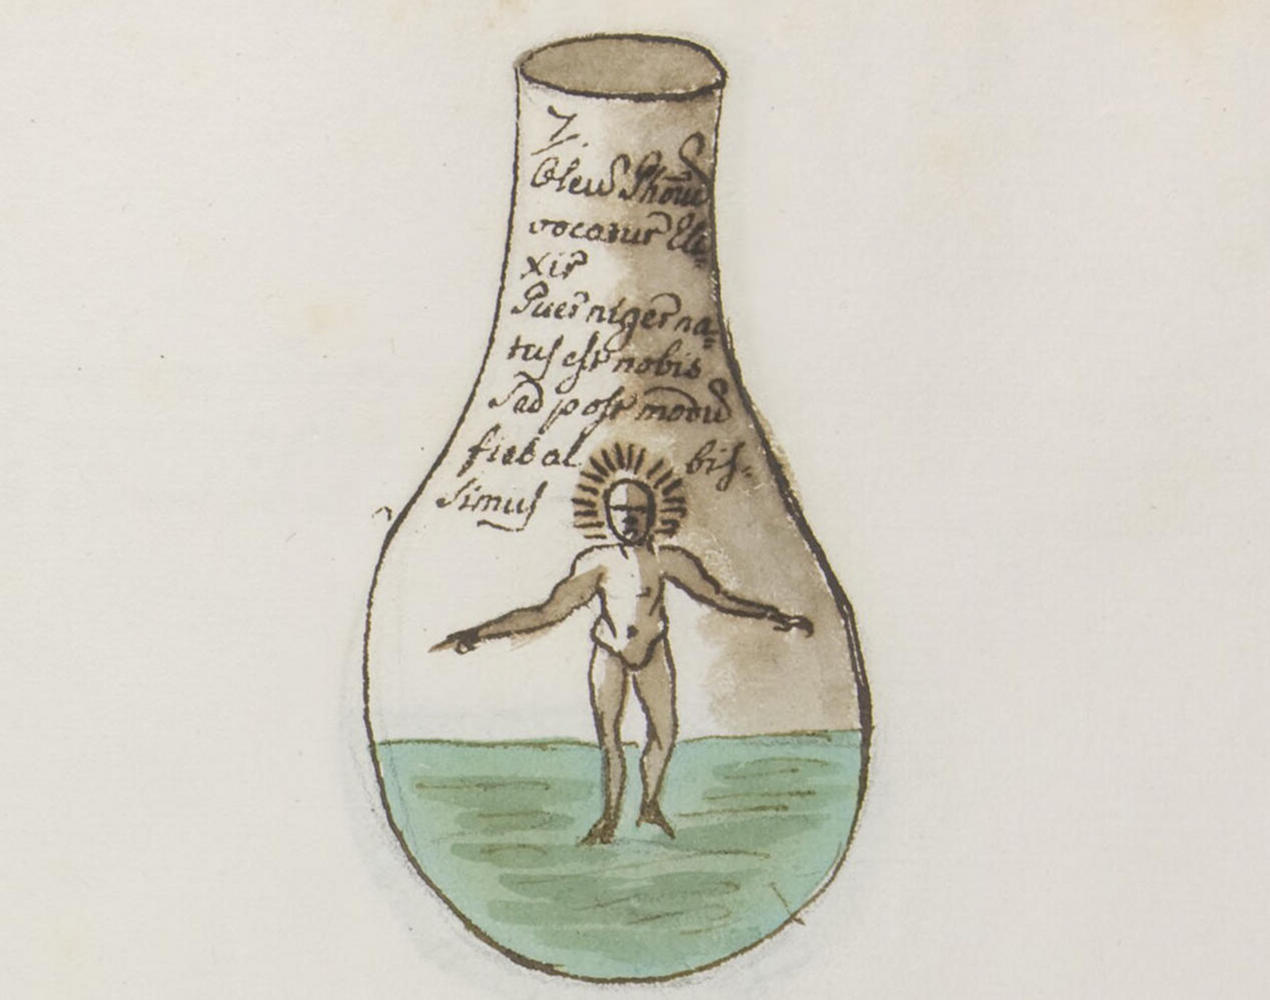 7.
Oleū Phōrū
vocatur Eli=
xir
Puer niger na=
tus est nobis
Sed post modū
fiet al bis=
simus